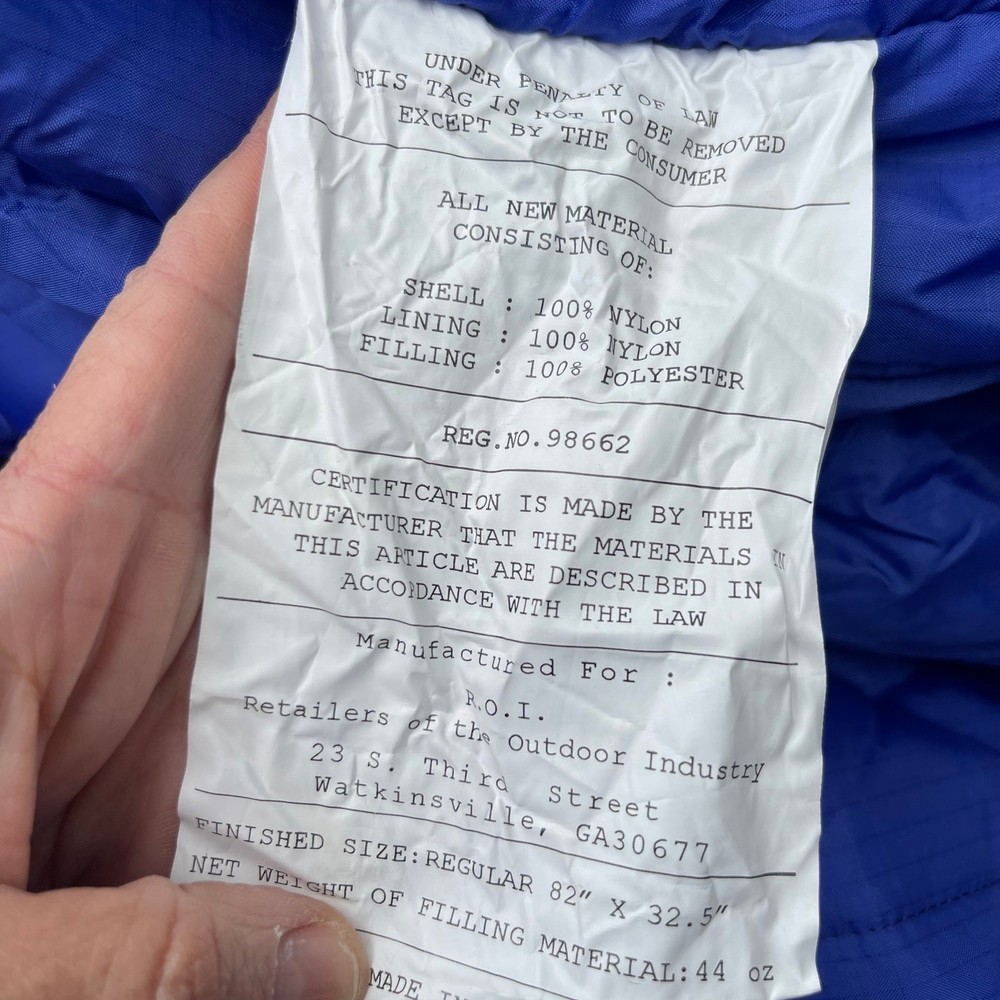 UNDER PENALTY OF LAW
THIS TAG IS NOT TO BE REMOVED
EXCEPT BY THE CONSUMER
ALL NEW MATERIAL
CONSISTING OF:
SHELL : 100% NYLON
LINING : 100% NYLON
FILLING : 100% POLYESTER
REG.NO.98662
CERTIFICATION IS MADE BY THE
MANUFACTURER THAT THE MATERIALS IN
THIS ARTICLE ARE DESCRIBED IN
ACCORDANCE WITH THE LAW
Manufactured For :
R.O.I.
Retailers of the Outdoor Industry
23 S. Third Street
Watkinsville, GA30677
FINISHED SIZE:REGULAR 82" X 32.5"
NET WEIGHT OF FILLING MATERIAL:44 oz
MADE